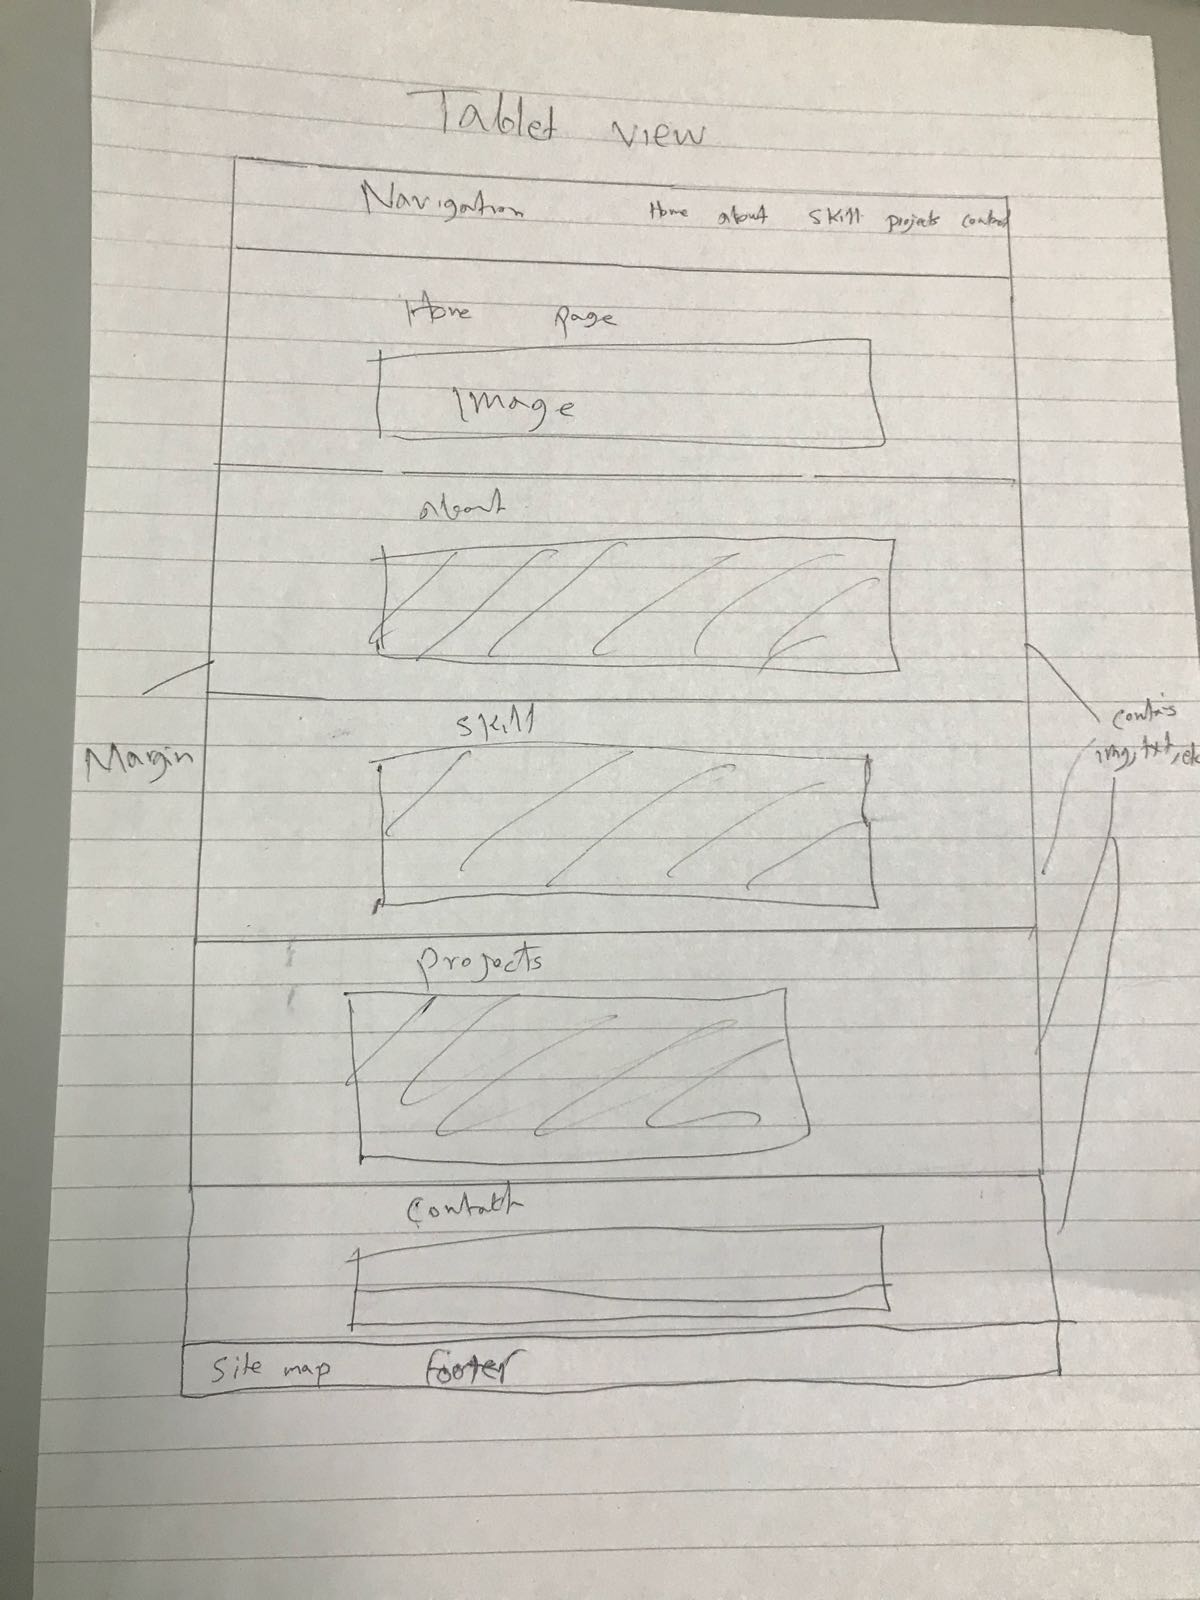 Tablet view
Navigation Home about skill projects contact
Home page
image
about
skill
Margin
contais
img, txt, etc
projects
Contact
Site map footer